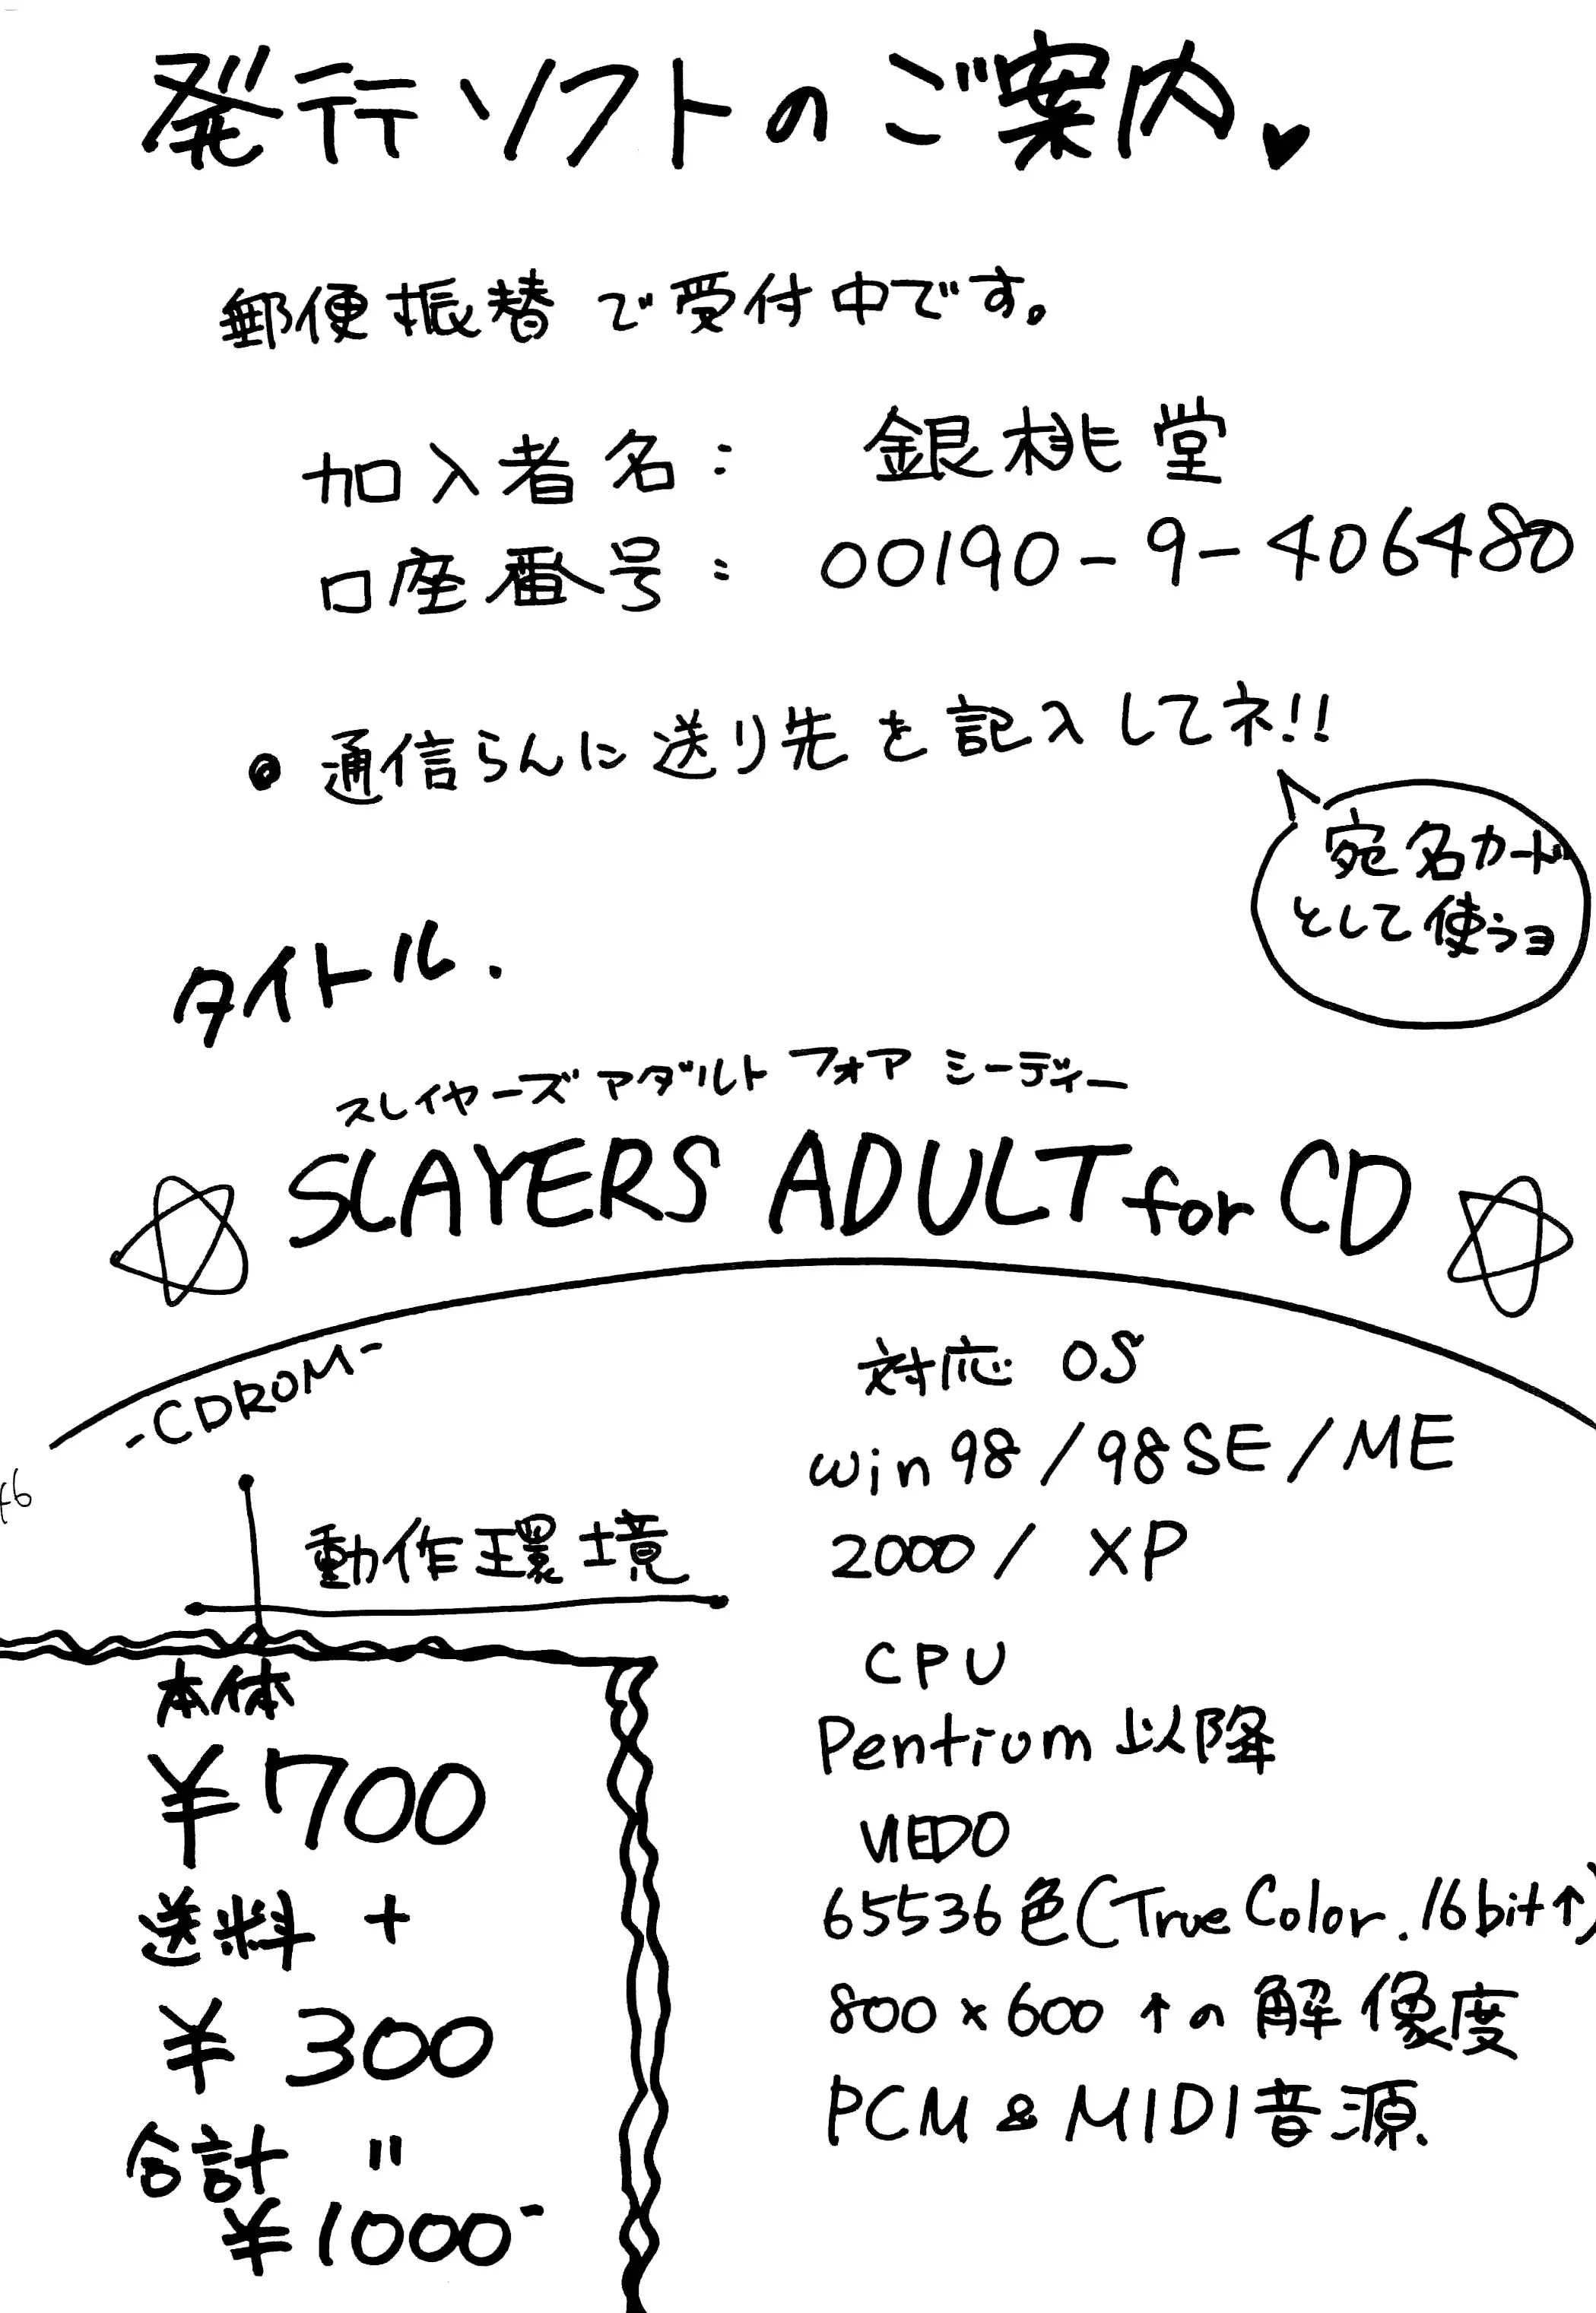 発行ソフトのご案内♥
郵便振替で受付中です。
加入者名： 銀桃堂
口座番号： 00190-9-406480
◎通信らんに送り先を記入してネ!!
宛名カード
として使うヨ
タイトル.
スレイヤーズ アダルト フォア シーディー
SLAYERS ADULT for CD
-CDROM-
動作環境
対応 OS
win 98/98SE/ME
2000/ XP
CPU
Pentium 以降
VIEDO
65536色(True Color.16bit↑)
800×600↑の解像度
PCM & MIDI音源
本体
¥700
送料 +
¥300
合計 =
¥1000-